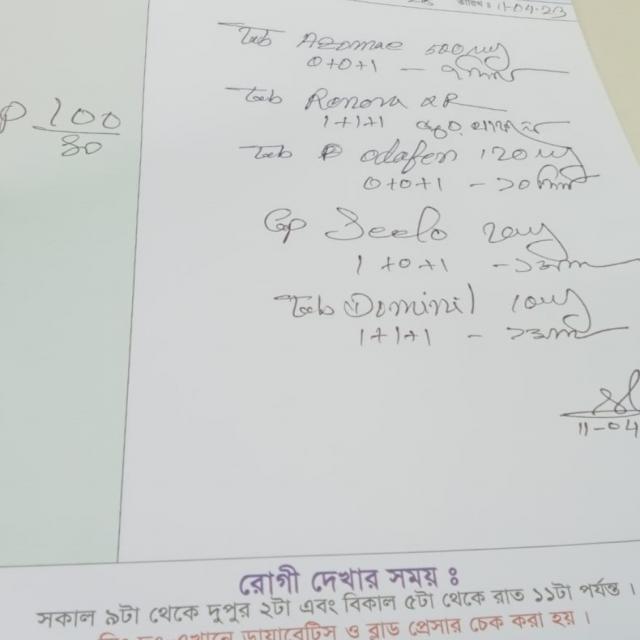 তারিখ : 11-04-23
Tab Azomac 500 mg
0+0+1 —
P 100
80
Tab Renova XR
1+1+1
Tab Odafen 120 mg
0+0+1 - ১০ দিন
Cap Seclo 20 mg
1+0+1 -
Tab Dominil 10 mg
1+1+1 -
11-04
রোগী দেখার সময় ঃ
সকাল ৯টা থেকে দুপুর ২টা এবং বিকাল ৫টা থেকে রাত ১১টা পর্যন্ত ।
এখানে ডায়াবেটিস ও ব্লাড প্রেসার চেক করা হয় ।